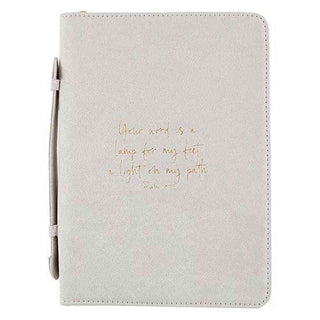 Your word is a
lamp for my feet
a light on my path